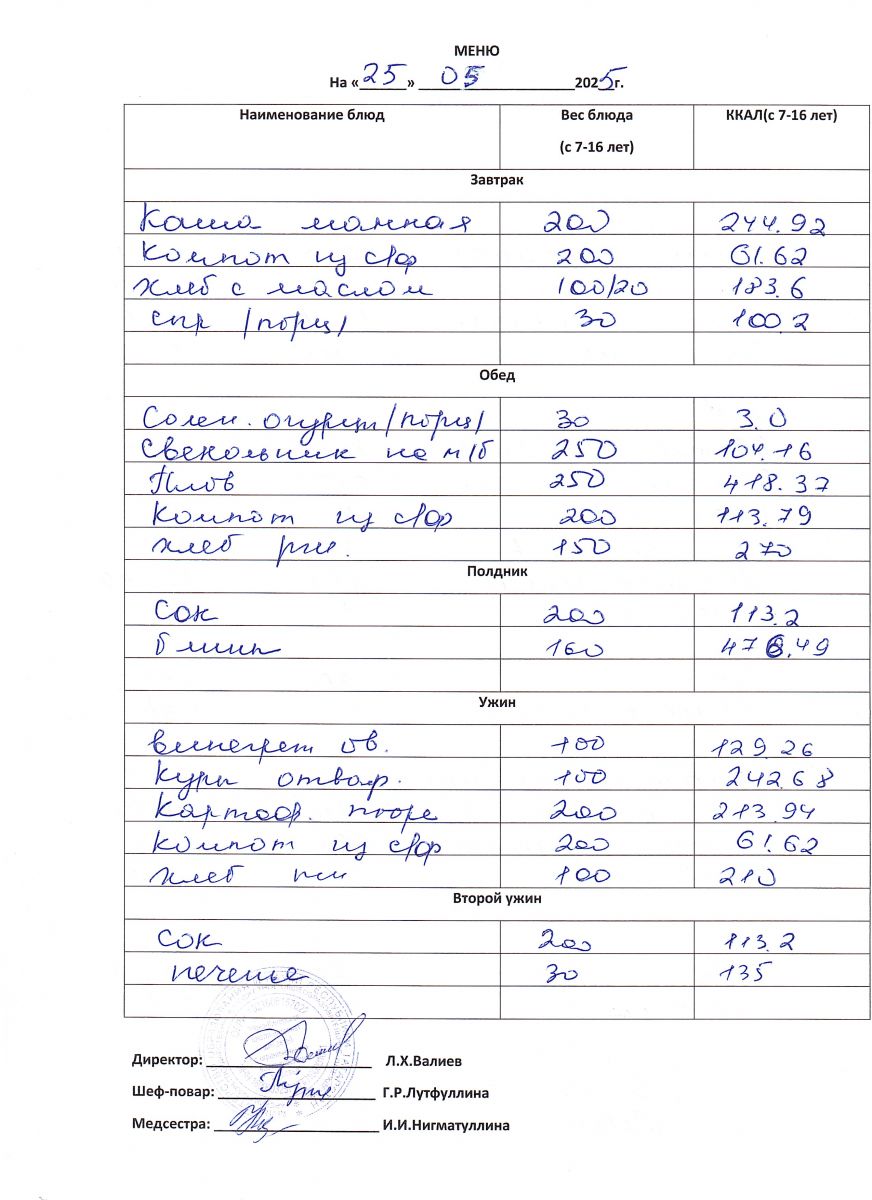 МЕНЮ
На «25» 05 2025г.
Наименование блюд Вес блюда (с 7-16 лет) ККАЛ(с 7-16 лет)
Завтрак
Каша манная 200 244.92
Компот из с/фр 200 61.62
Хлеб с маслом 100/20 183.6
сыр /порц/ 30 100.2
Обед
Солен. огурцы /порц/ 30 3.0
Свекольник на м/б 250 104.16
Плов 250 418.37
Компот из с/фр 200 113.79
хлеб рж. 150 270
Полдник
Сок 200 113.2
блины 160 476.49
Ужин
винегрет ов. 100 129.26
Куры отвар. 100 242.68
Картоф. пюре 200 213.94
компот из с/фр 200 61.62
хлеб 100 210
Второй ужин
сок 200 113.2
печенье 30 135
Директор: Л.Х.Валиев
Шеф-повар: Г.Р.Лутфуллина
Медсестра: И.И.Нигматуллина